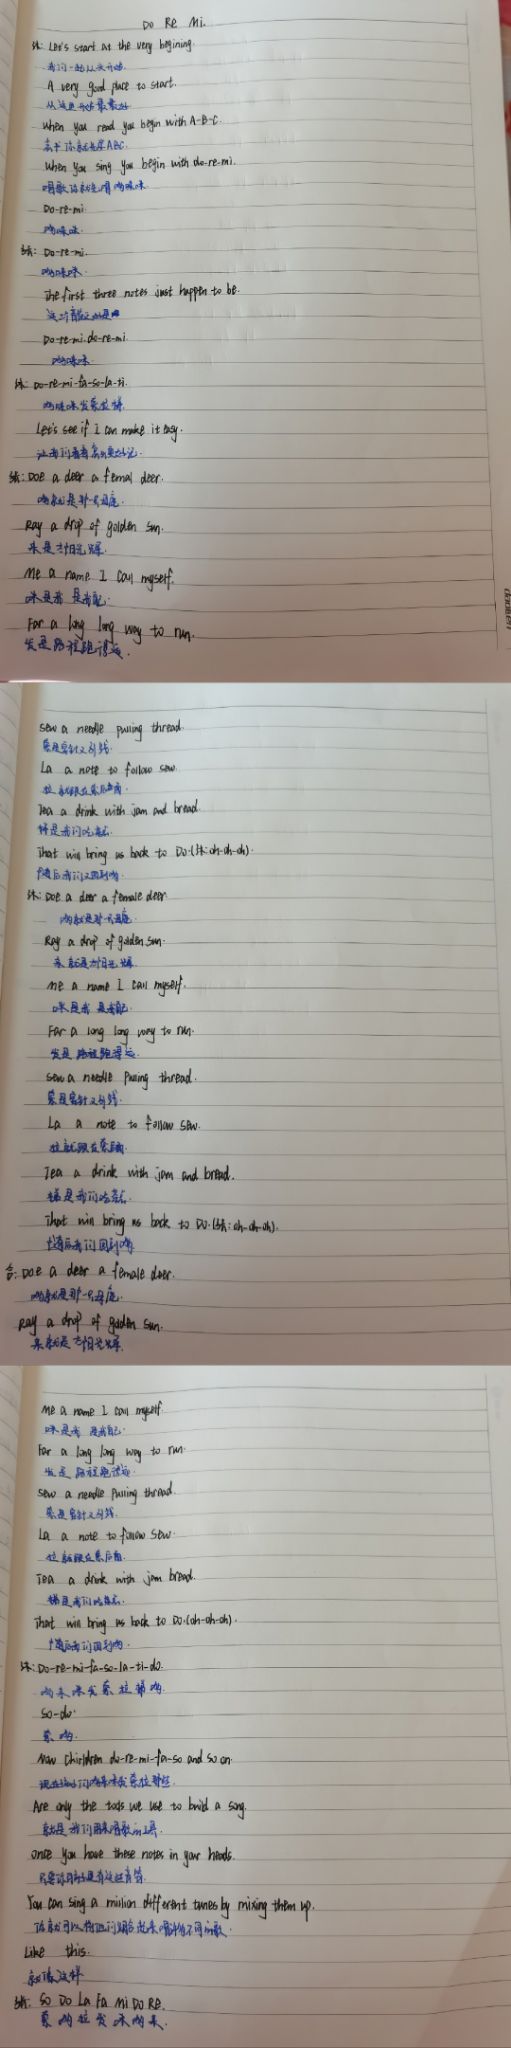 Do Re Mi.
Let's start at the very begining.
A very good place to start.
从这里开始最最好
When you read you begin with A-B-C.
When you sing you begin with do-re-mi.
唱歌你就先唱哆咪咪
Do-re-mi.
哆咪咪
Do-re-mi.
哆咪咪
The first three notes just happen to be.
Do-re-mi.do-re-mi.
哆咪咪
Do-re-mi-fa-so-la-ti.
Let's see if I can make it easy.
Doe a deer a femal deer.
哆就是那一只母鹿
Ray a drop of golden sun.
来是太阳光辉
Me a name I call myself.
咪是我 是我自己
Far a long long way to run.
发是路程跑得远.
Sew a needle pulling thread.
索是穿针又引线.
La a note to follow sow.
拉就跟在索后面
Tea a drink with jam and bread.
梯是我们吃茶点
That will bring us back to Do.(oh-oh-oh).
然后我们又回到哆
Doe a deer a female deer.
哆就是那一只母鹿
Ray a drop of golden sun.
来就是太阳光辉
Me a name I call myself.
咪是我 是我自己
Far a long long way to run.
发是路程跑得远.
Sew a needle pulling thread.
索是穿针又引线.
La a note to follow sew.
拉就跟在索后面
Tea a drink with jam and bread.
梯是我们吃茶点
That will bring us back to Do.(oh-oh-oh).
然后我们回到哆
合: Doe a deer a female deer.
哆就是那一只母鹿
Ray a drop of golden sun.
来就是太阳光辉
Me a name I call myself.
咪是我 是我自己
Far a long long way to run.
发是路程跑得远
Sew a needle pulling thread.
索是穿针又引线
La a note to follow sew.
拉就跟在索后面
Tea a drink with jam bread.
梯是我们吃茶点
That will bring us back to Do.(oh-oh-oh).
然后我们回到哆
Do-re-mi-fa-so-la-ti-do.
哆来咪发索拉梯哆
So-do.
索哆
Now Chirldren do-re-mi-fa-so and so on.
Are only the tools we use to build a song.
就是我们用来唱歌的工具
Once you have these notes in your heads.
You can sing a million different tunes by mixing them up.
Like this.
就像这样
So Do La Fa Mi Do Re.
索哆拉发咪哆来